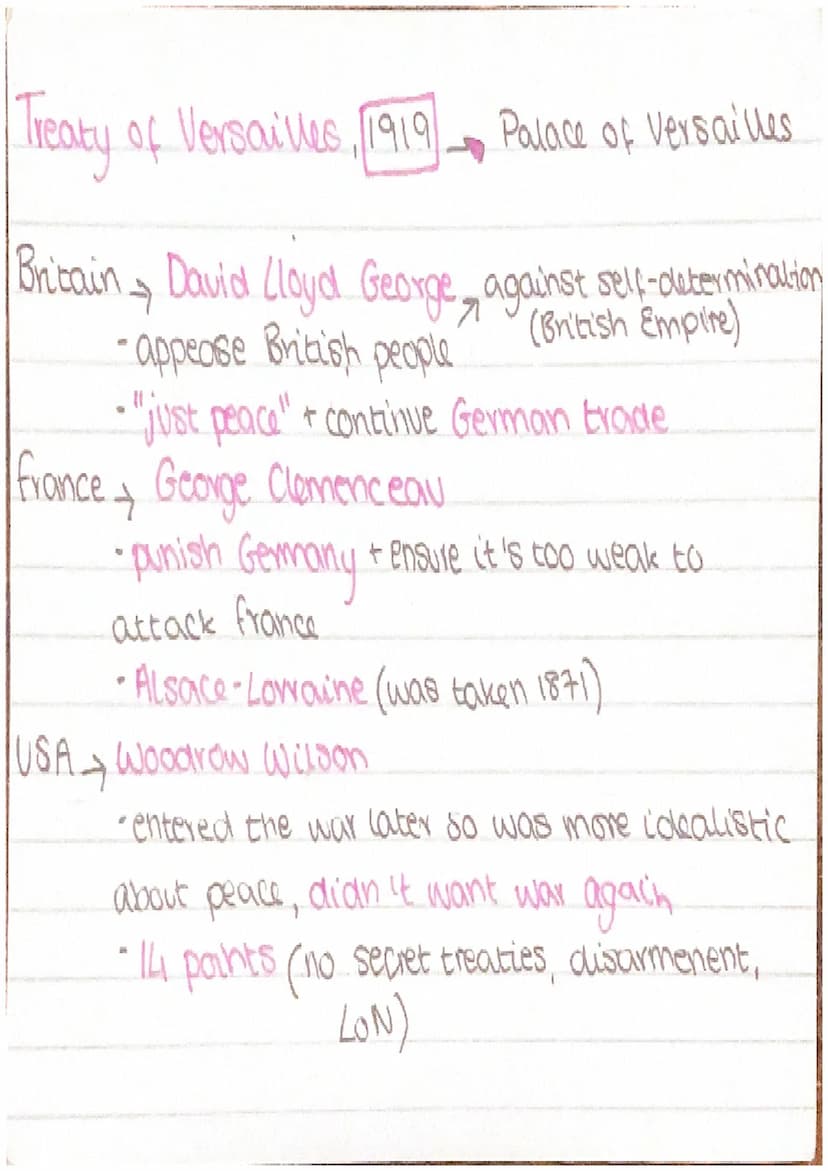 Treaty of Versailles, 1919 → Palace of Versailles
Britain → David Lloyd George → against self-determination
(British Empire)
- appease British people
• "just peace" + continue German trade
France → George Clemenceau
• punish Germany + ensure it's too weak to
attack france
• Alsace-Lorraine (was taken 1871)
USA → Woodrow Wilson
• entered the war later so was more idealistic
about peace, didn't want war again
• 14 points (no secret treaties, disarmenent,
LoN)